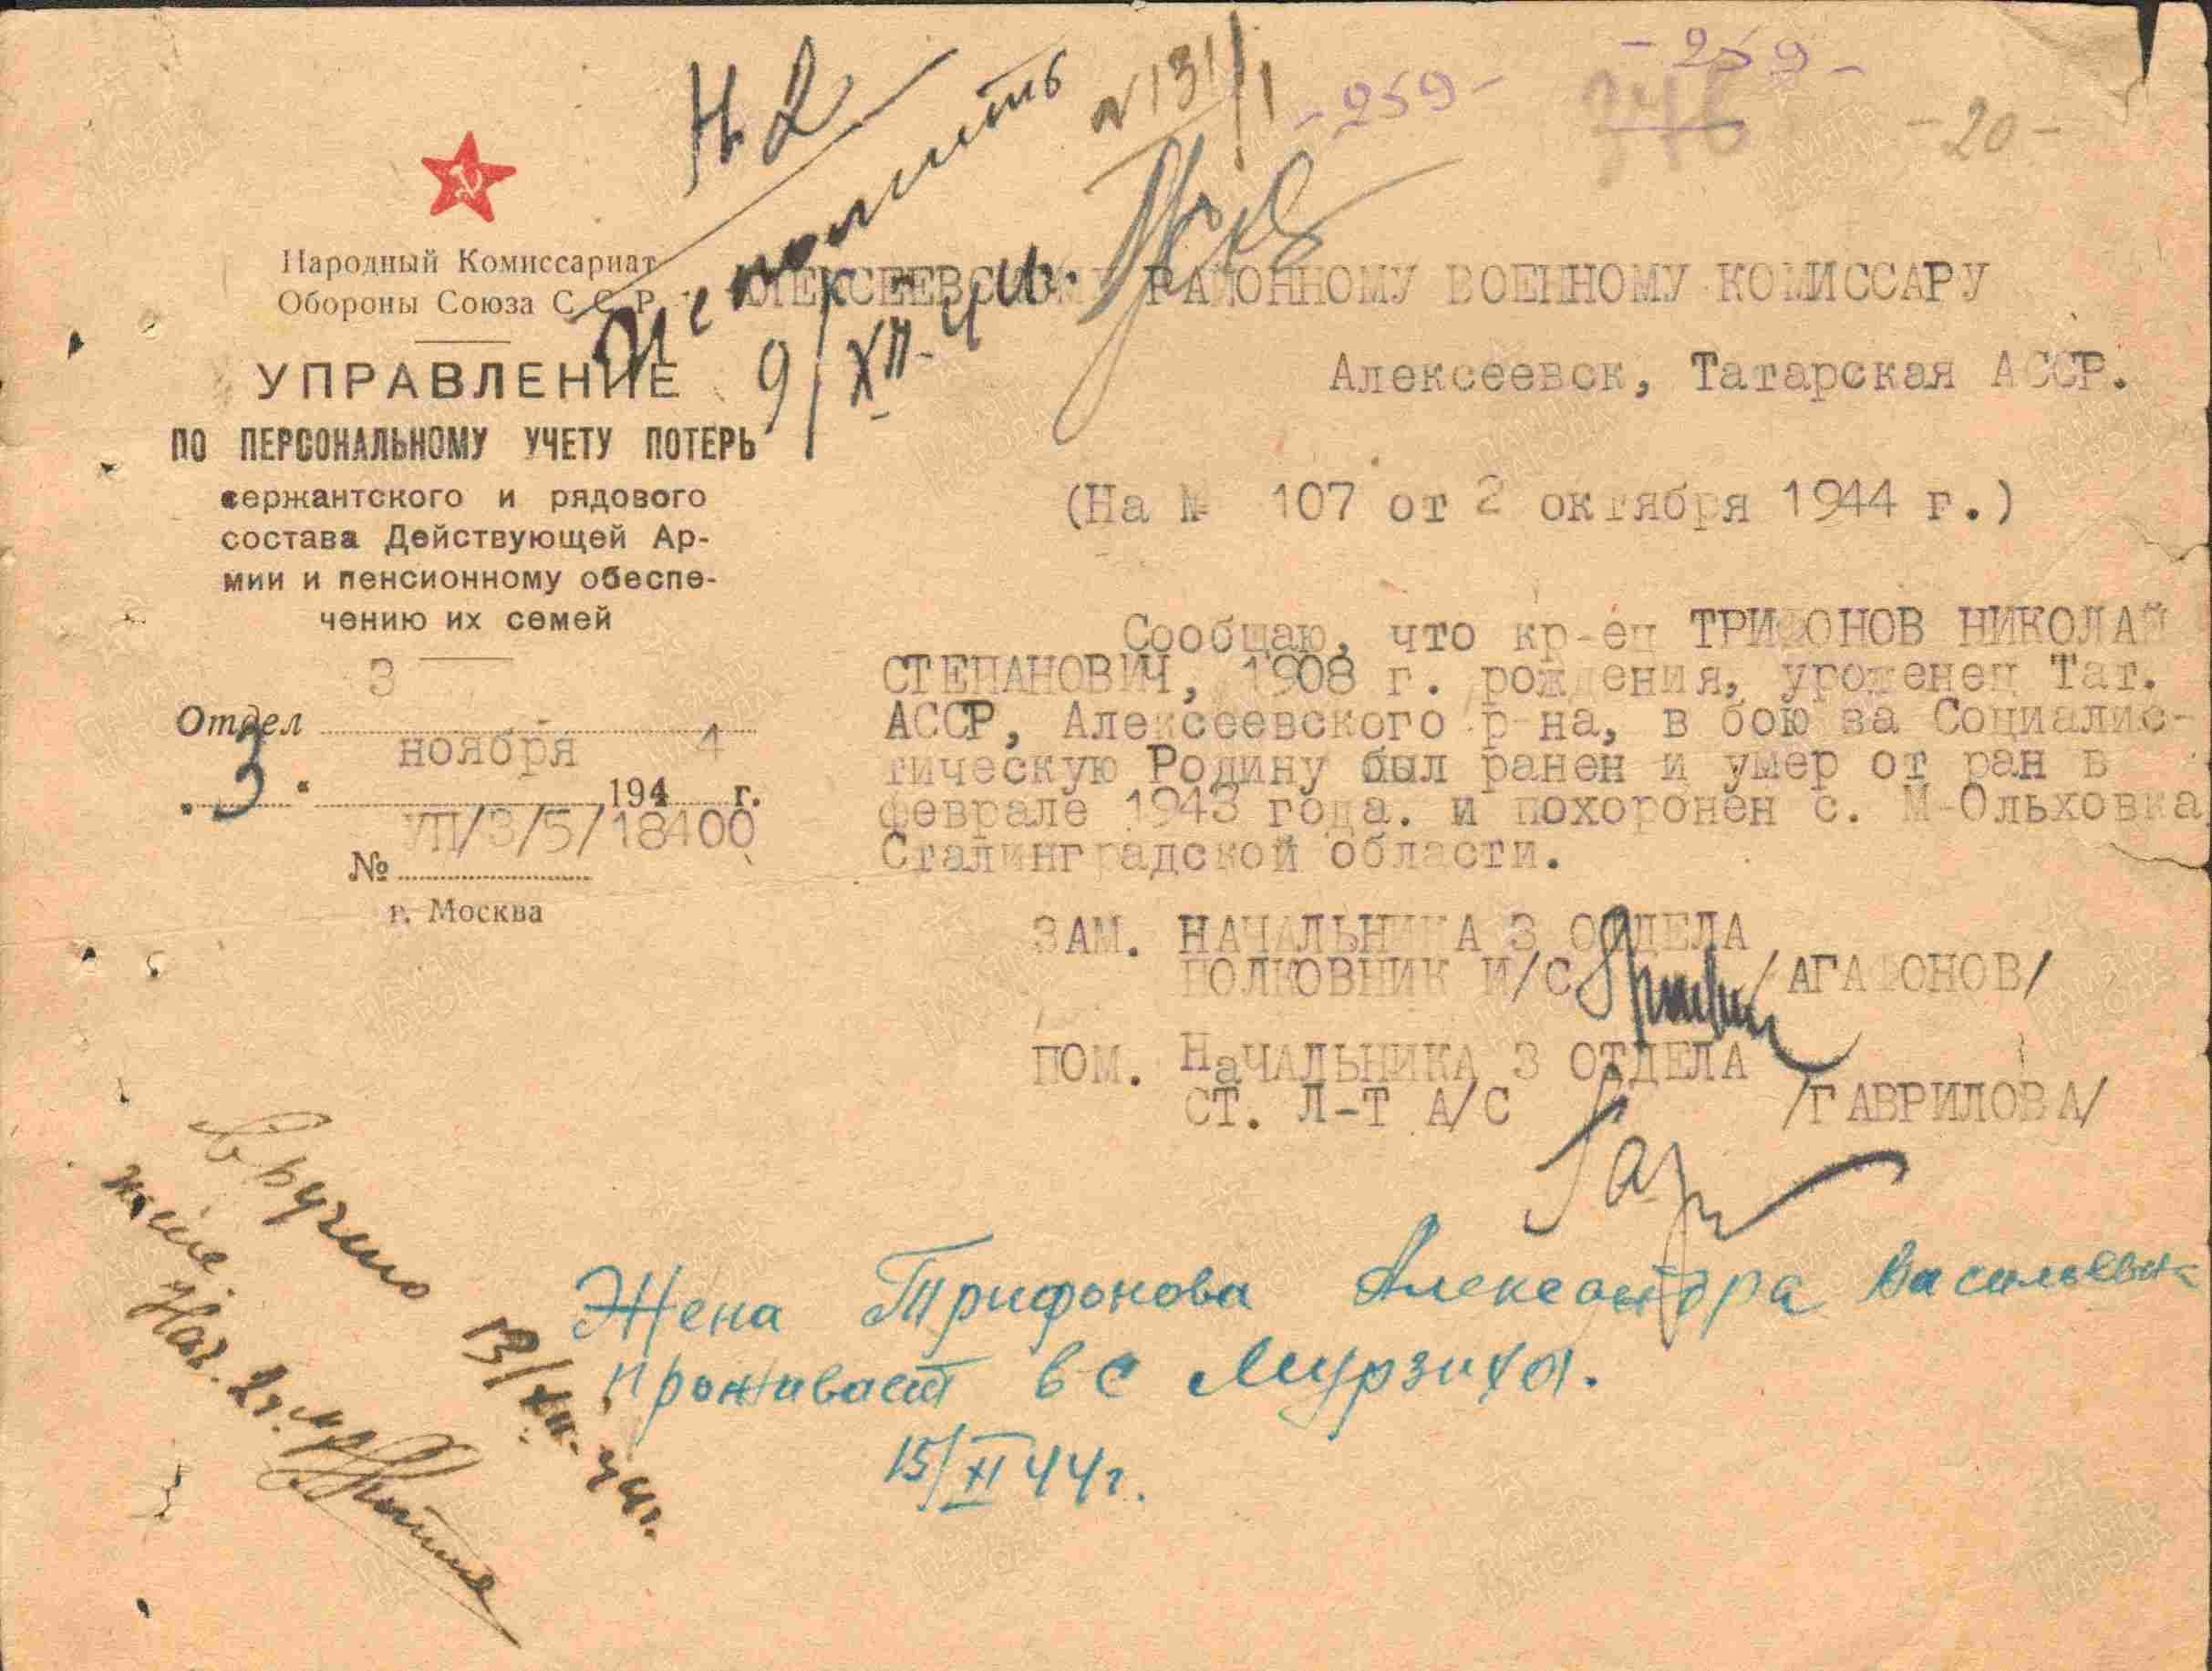 Н. 2
Исполнить
9/XII-44г.
N 131/1
-259-
-259-
346
-20-
Народный Комиссариат
Обороны Союза С.С.Р.
УПРАВЛЕНИЕ
ПО ПЕРСОНАЛЬНОМУ УЧЕТУ ПОТЕРЬ
сержантского и рядового
состава Действующей Ар-
мии и пенсионному обеспе-
чению их семей
Отдел 3
„3“ ноября 1944 г.
№ УП/3/5/18400
г. Москва
АЛЕКСЕЕВСКОМУ РАЙОННОМУ ВОЕННОМУ КОМИССАРУ
Алексеевск, Татарская АССР.
(На № 107 от 2 октября 1944 г.)
Сообщаю, что кр-ец ТРИФОНОВ НИКОЛАЙ
СТЕПАНОВИЧ, 1908 г. рождения, уроженец Тат.
АССР, Алексеевского р-на, в бою за Социалис-
тическую Родину был ранен и умер от ран в
феврале 1943 года. и похоронен с. М-Ольховка
Сталинградской области.
ЗАМ. НАЧАЛЬНИКА 3 ОТДЕЛА
ПОЛКОВНИК И/С /АГАФОНОВ/
ПОМ. НаЧАЛЬНИКА 3 ОТДЕЛА
СТ. Л-Т А/С /ГАВРИЛОВА/
Вручено
жене
Нач. 2ч.
13/XII-44г.
Жена Трифонова Александра Васильевн
проживает в с Мурзиха.
15/XI 44г.